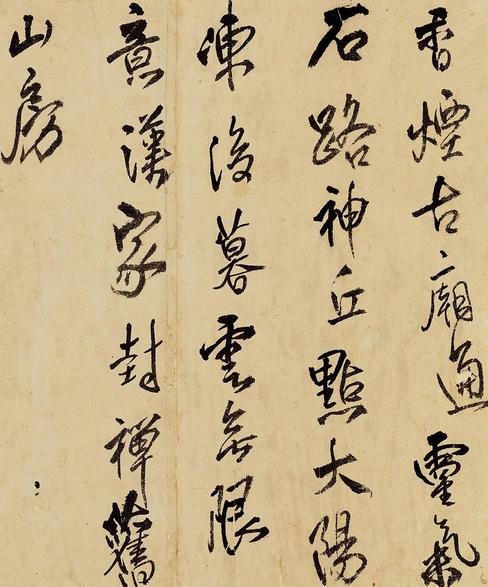 香煙古廟通靈氣
石路神丘點大陽
後暮雲無限
意漢家封禪舊
山房